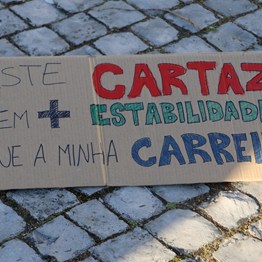 ESTE CARTAZ
TEM + ESTABILIDADE
QUE A MINHA CARREI